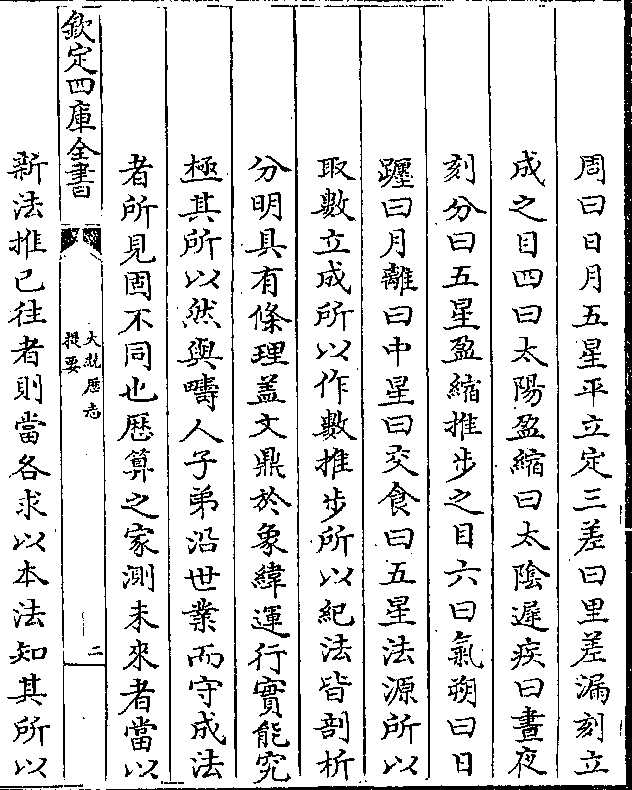 周曰日月五星平立定三差曰里差漏刻立
成之目四曰太陽盈縮曰太陰遲疾曰晝夜
刻分曰五星盈縮推步之目六曰氣朔曰日
躔曰月離曰中星曰交食曰五星法源所以
取數立成所以作數推步所以紀法皆剖析
分明具有條理盖文鼎於象緯運行實能究
極其所以然與疇人子弟沿世業而守成法
者所見固不同也厯算之家測未來者當以
欽定四庫全書
大統厯志
提要
二
新法推已往者則當各求以本法知其所以